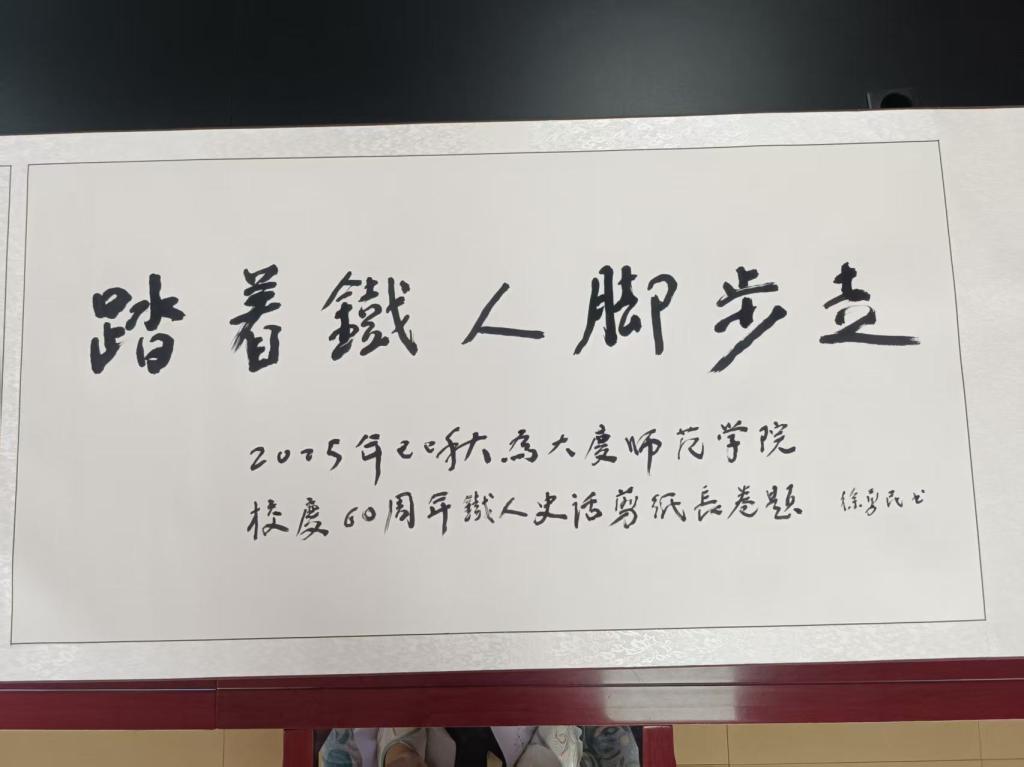 踏着鐵人脚步走
2025年初秋為大慶师范学院
校慶60周年鐵人史话剪纸長卷題
徐勇民书